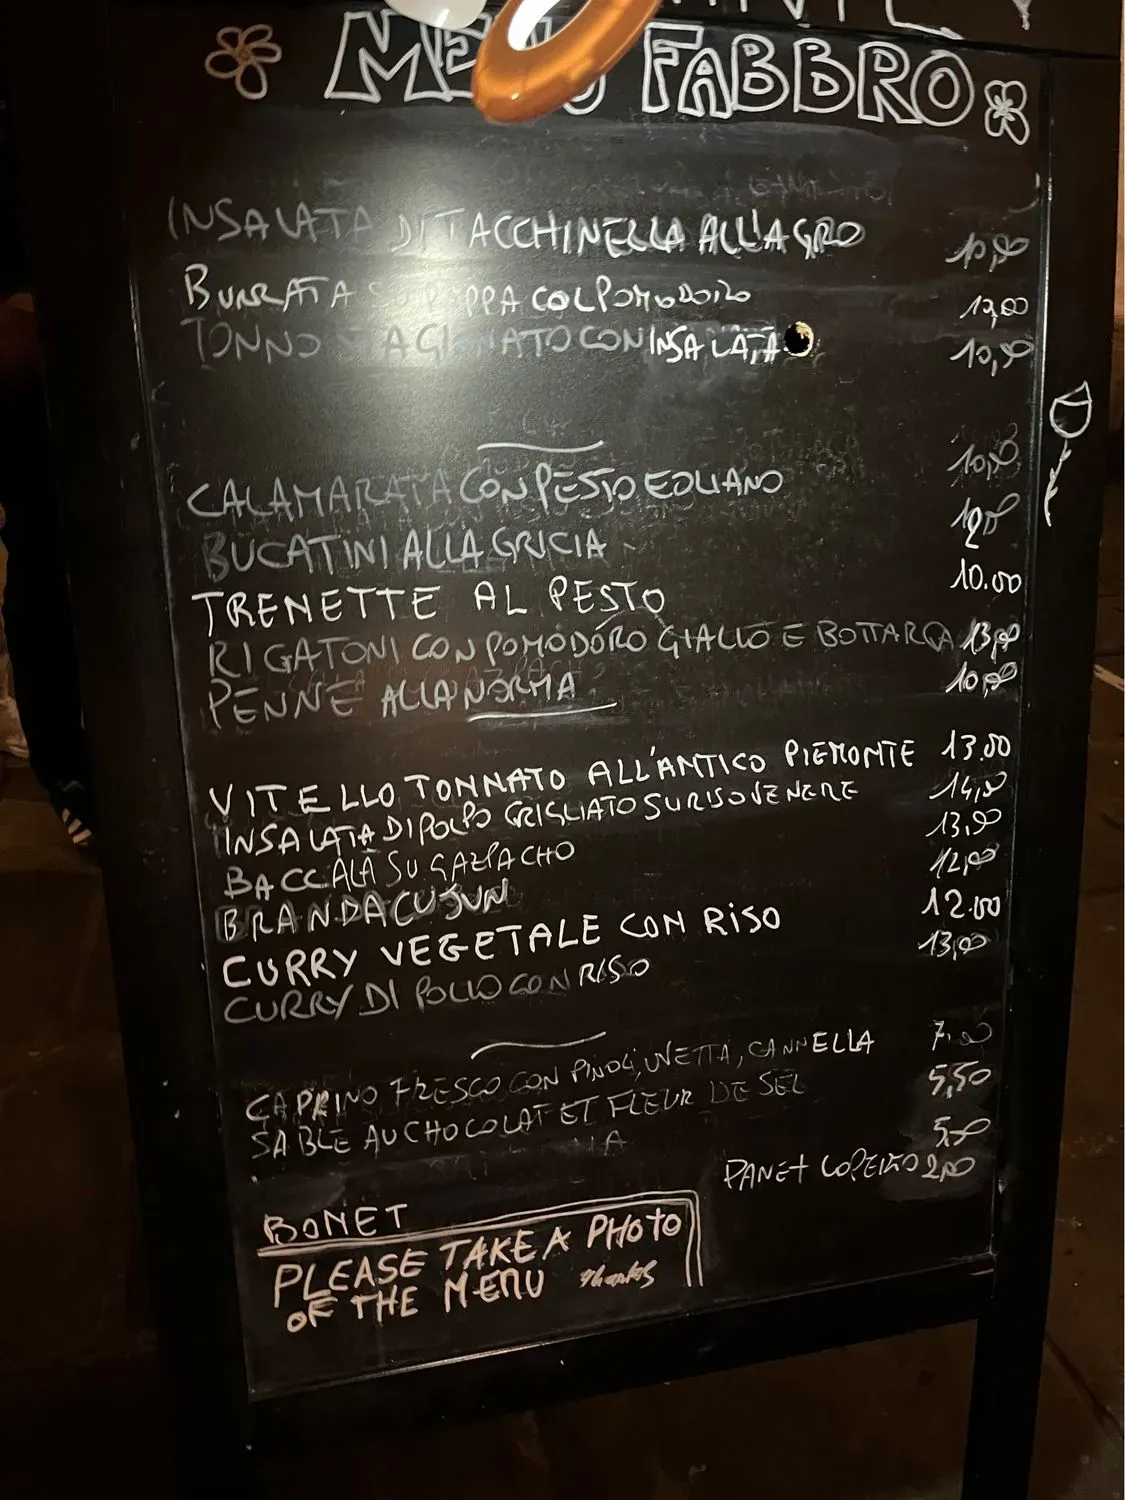 MENU FABBRO
INSALATA DI TACCHINELLA ALL'AGRO 10,00
BURRATA SU PAPPA COL POMODORO 12,00
TONNO STAGIONATO CON INSALATA 10,00
CALAMARATA CON PESTO EOLIANO 10,00
BUCATINI ALLA GRICIA
TRENETTE AL PESTO 10.00
RIGATONI CON POMODORO GIALLO E BOTTARGA 13,00
PENNE ALLA NORMA 10,00
VITELLO TONNATO ALL'ANTICO PIEMONTE 13.00
INSALATA DI POLPO GRIGLIATO SU RISO VENERE 14,00
BACCALÀ SU GAZPACHO 13,00
BRANDACUJUN 12,00
CURRY VEGETALE CON RISO 12.00
CURRY DI POLLO CON RISO 13,00
CAPRINO FRESCO CON PINOLI, UVETTA, CANNELLA 7,00
SABLE AU CHOCOLAT ET FLEUR DE SEL 5,50
BONET 5,00
PANE + COPERTO 2,00
PLEASE TAKE A PHOTO
OF THE MENU thanks